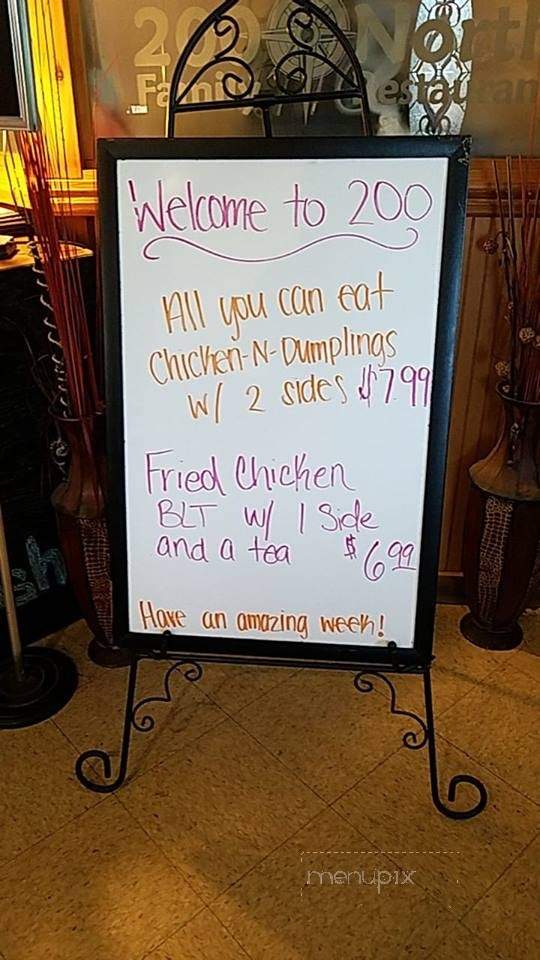 200 North
Family Restaurant
Welcome to 200
All you can eat
Chicken-N-Dumplings
w/ 2 sides $7.99
Fried Chicken
BLT w/ 1 Side
and a tea $6.99
Have an amazing week!
menupix